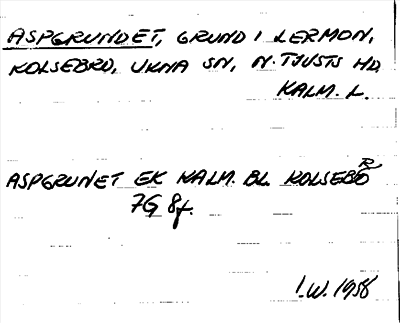 ASPGRUNDET, GRUND I LERMON,
KOLSEBRO, UKNA SN, N. TJUSTS HD,
KALM. L.
ASPGRUNET EK KALM. BL KOLSEBRO
7G 8f.
I.W. 1958